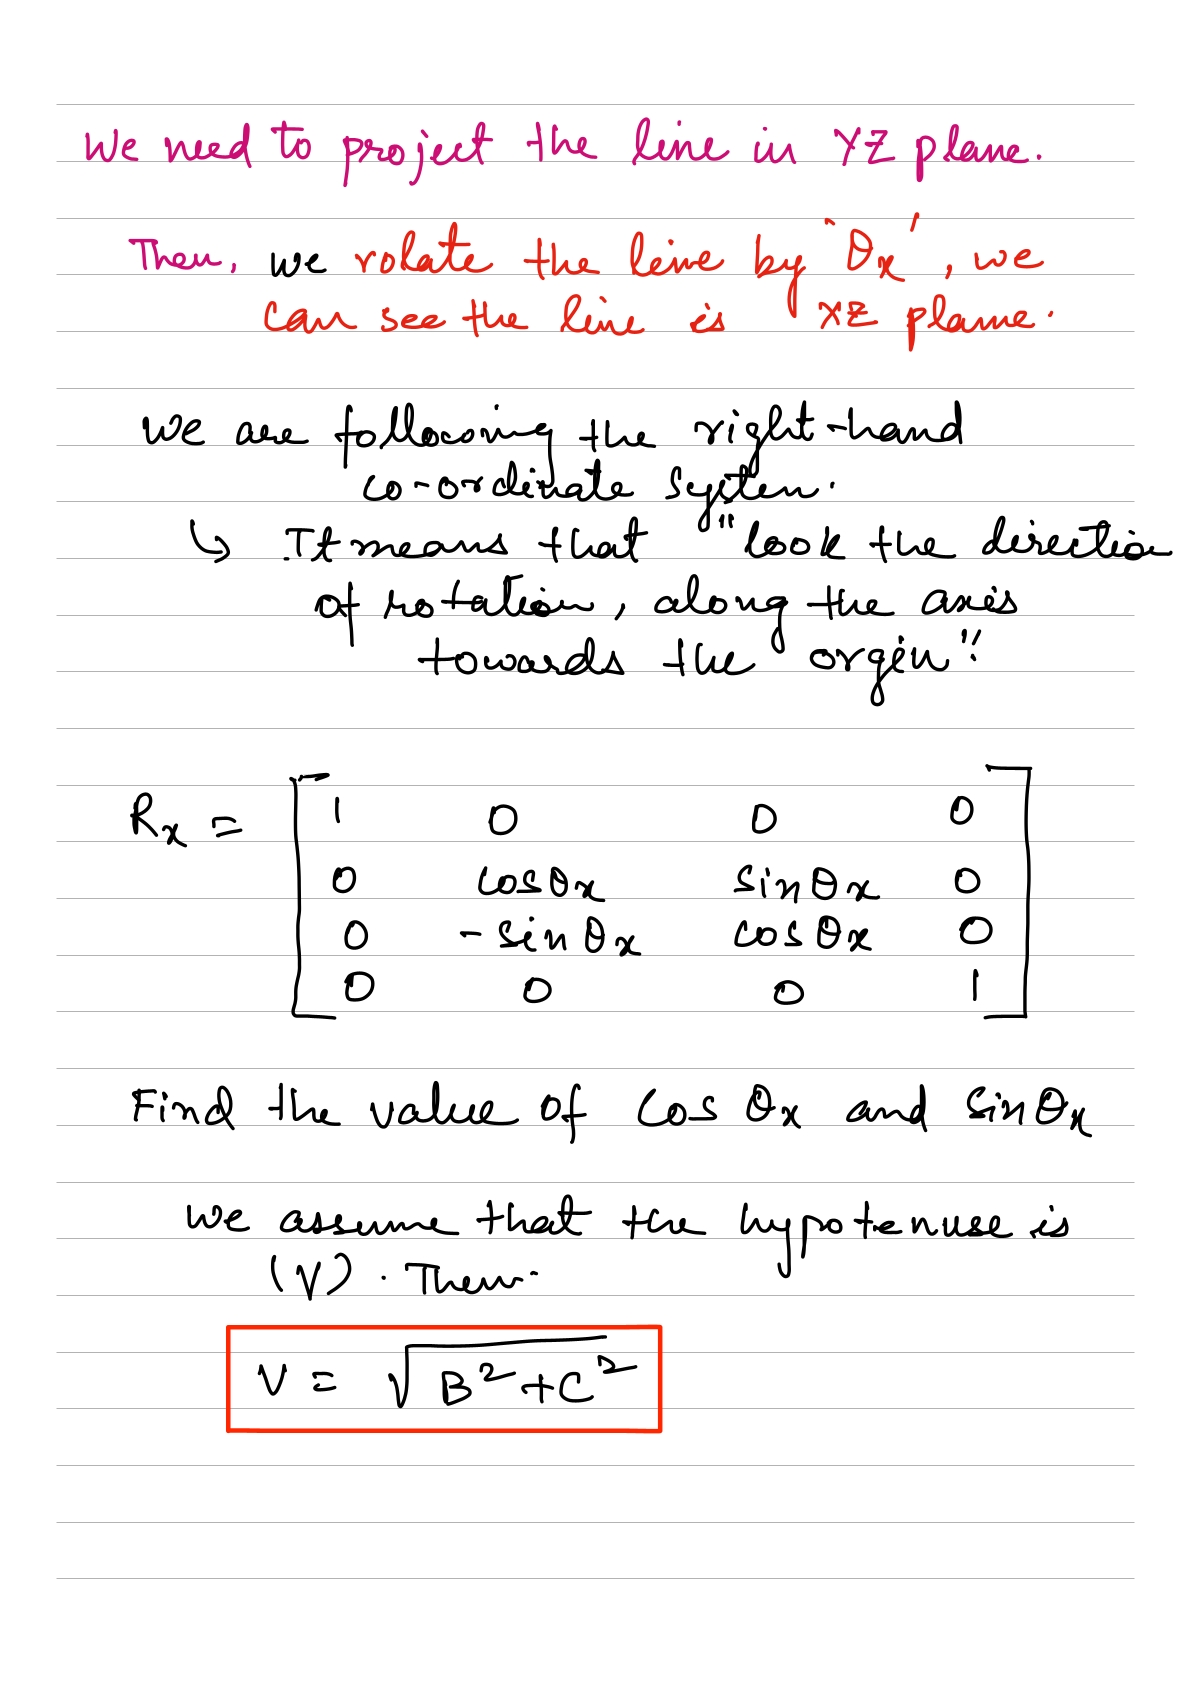 We need to project the line in YZ plane.
Then, we rotate the line by 'θx', we
can see the line is XZ plane.
We are following the right-hand
co-ordinate system.
↳ It means that "look the direction
of rotation, along the axis
towards the orgin".
Rx = [ 1 0 0 0
0 cosθx sinθx 0
0 -sinθx cosθx 0
0 0 0 1 ]
Find the value of Cos θx and Sinθx
We assume that the hypotenuse is
(V). Then.
V = √B²+C²